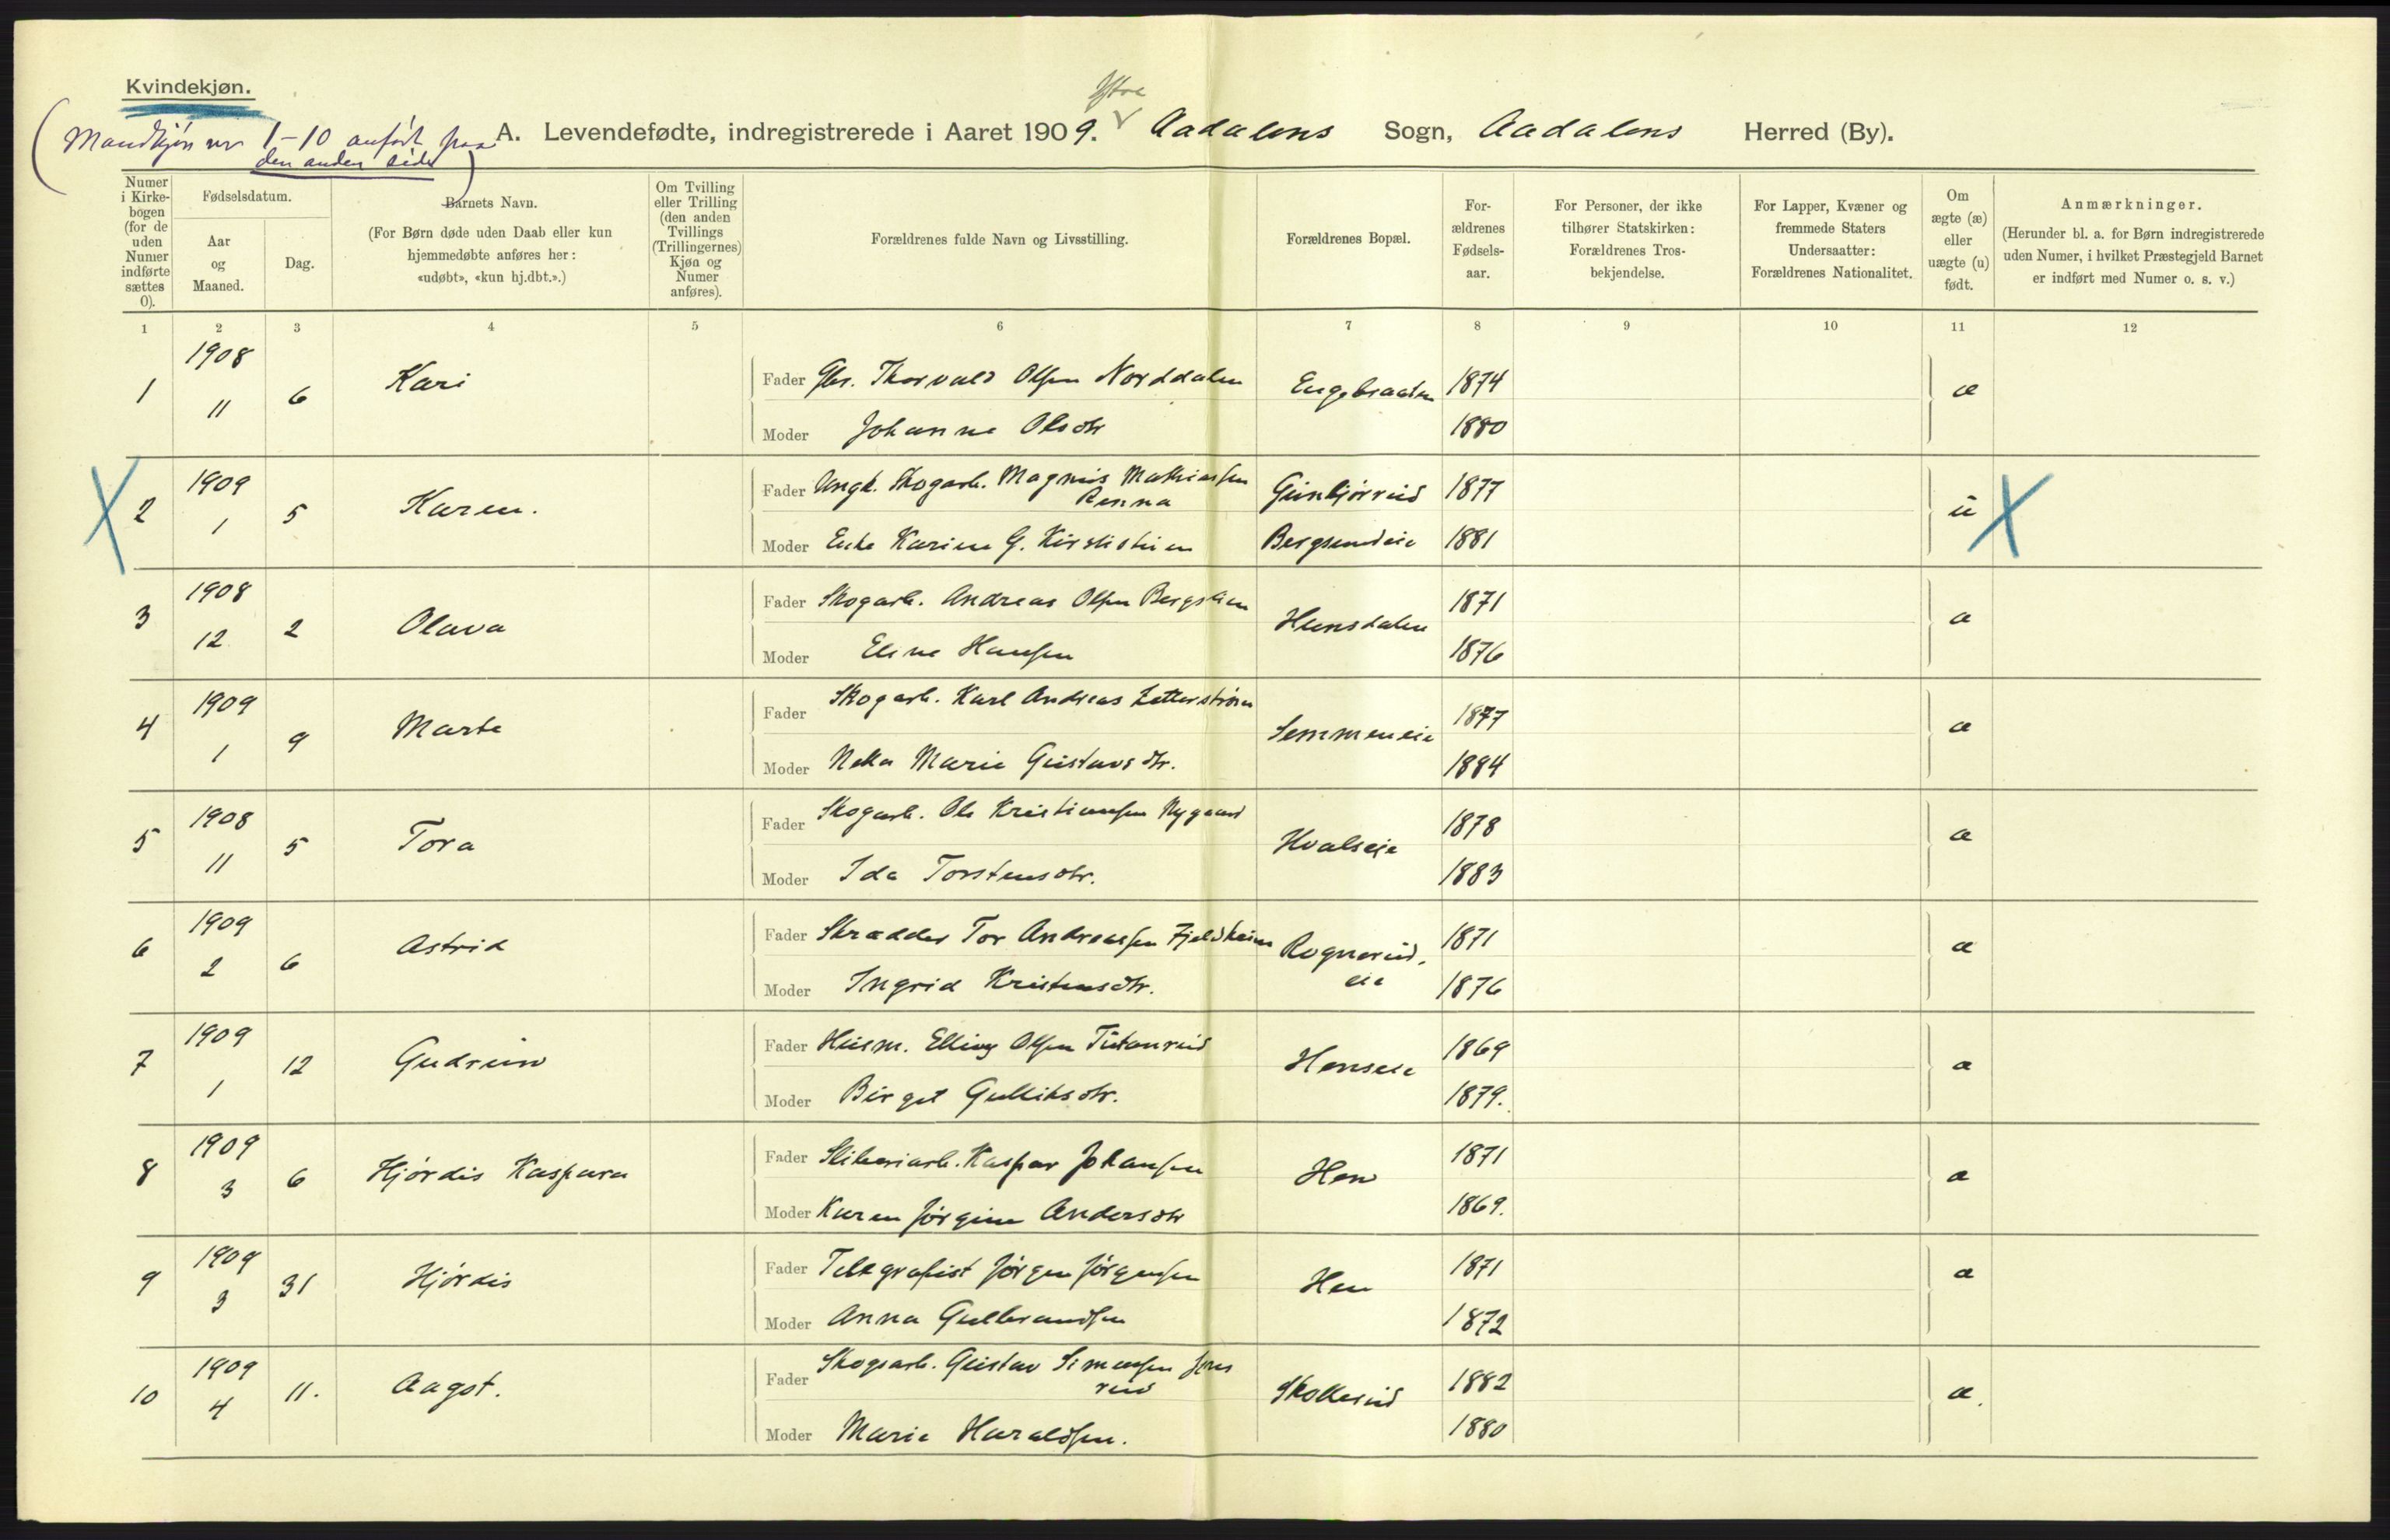 Kvindekjøn.
(Mandkjøn nr 1–10 anført paa
den anden side)
Ytre
A. Levendefødte, indregistrerede i Aaret 1909. Aadalens Sogn, Aadalens Herred (By).
Numer i Kirke-bogen (for de uden Numer indførte sættes 0).
Fødselsdatum.
Aar og Maaned.
Dag.
Barnets Navn.
(For Børn døde uden Daab eller kun hjemmedøbte anføres her: «udøbt», «kun hj.dbt.».)
Om Tvilling eller Trilling (den anden Tvillings (Trillingernes) Kjøn og Numer anføres).
Forældrenes fulde Navn og Livsstilling.
Forældrenes Bopæl.
For-ældrenes Fødsels-aar.
For Personer, der ikke tilhører Statskirken: Forældrenes Tros-bekjendelse.
For Lapper, Kvæner og fremmede Staters Undersaatter: Forældrenes Nationalitet.
Om ægte (æ) eller uægte (u) født.
Anmærkninger.
(Herunder bl. a. for Børn indregistrerede uden Numer, i hvilket Præstegjeld Barnet er indført med Numer o. s. v.)
1 2 3 4 5 6 7 8 9 10 11 12
1 1908 11 6 Kari Fader Gbr. Thorvald Olsen Norddalen Engebraaten 1874 æ
Moder Johanne Olsdtr 1880
X 2 1909 1 5 Karen. Fader Ungk. Skogarb. Magnus Mathiassen Renna Gunbjørrud 1877 u X
Moder Enke Karine G. Kirstistuen Bergsundeie 1881
3 1908 12 2 Olava Fader Skogarb. Andreas Olsen Bergslien Hunsdalen 1871 æ
Moder Eline Hansen 1876
4 1909 1 9 Marte Fader Skogarb. Karl Andreas Zetterstrøm Semmeneie 1877 æ
Moder Netta Marie Gustavsdtr. 1884
5 1908 11 5 Tora Fader Skogarb. Ole Kristiansen Nygaard Hvalseie 1878 æ
Moder Ida Torstensdtr. 1883
6 1909 2 6 Astrid Fader Skrædder Tor Andreassen Fjeldheim Rognerud. eie 1871 æ
Moder Ingrid Kristensdtr. 1876
7 1909 1 12 Gudrun Fader Husm. Elling Olsen Tutanrud Henseie 1869 æ
Moder Birgit Gulliksdtr. 1879.
8 1909 3 6 Hjørdis Kaspara Fader Sliberiarb. Kaspar Johansen Hen 1871 æ
Moder Karen Jørgine Andersdtr 1869.
9 1909 3 31 Hjørdis Fader Telegrafist Jørgen Jørgensen Hen 1871 æ
Moder Anna Gulbrandsen 1872
10 1909 4 11. Aagot. Fader Skogsarb. Gustav Simensen Jons rud Skollerud 1882 æ.
Moder Marie Haraldsen. 1880